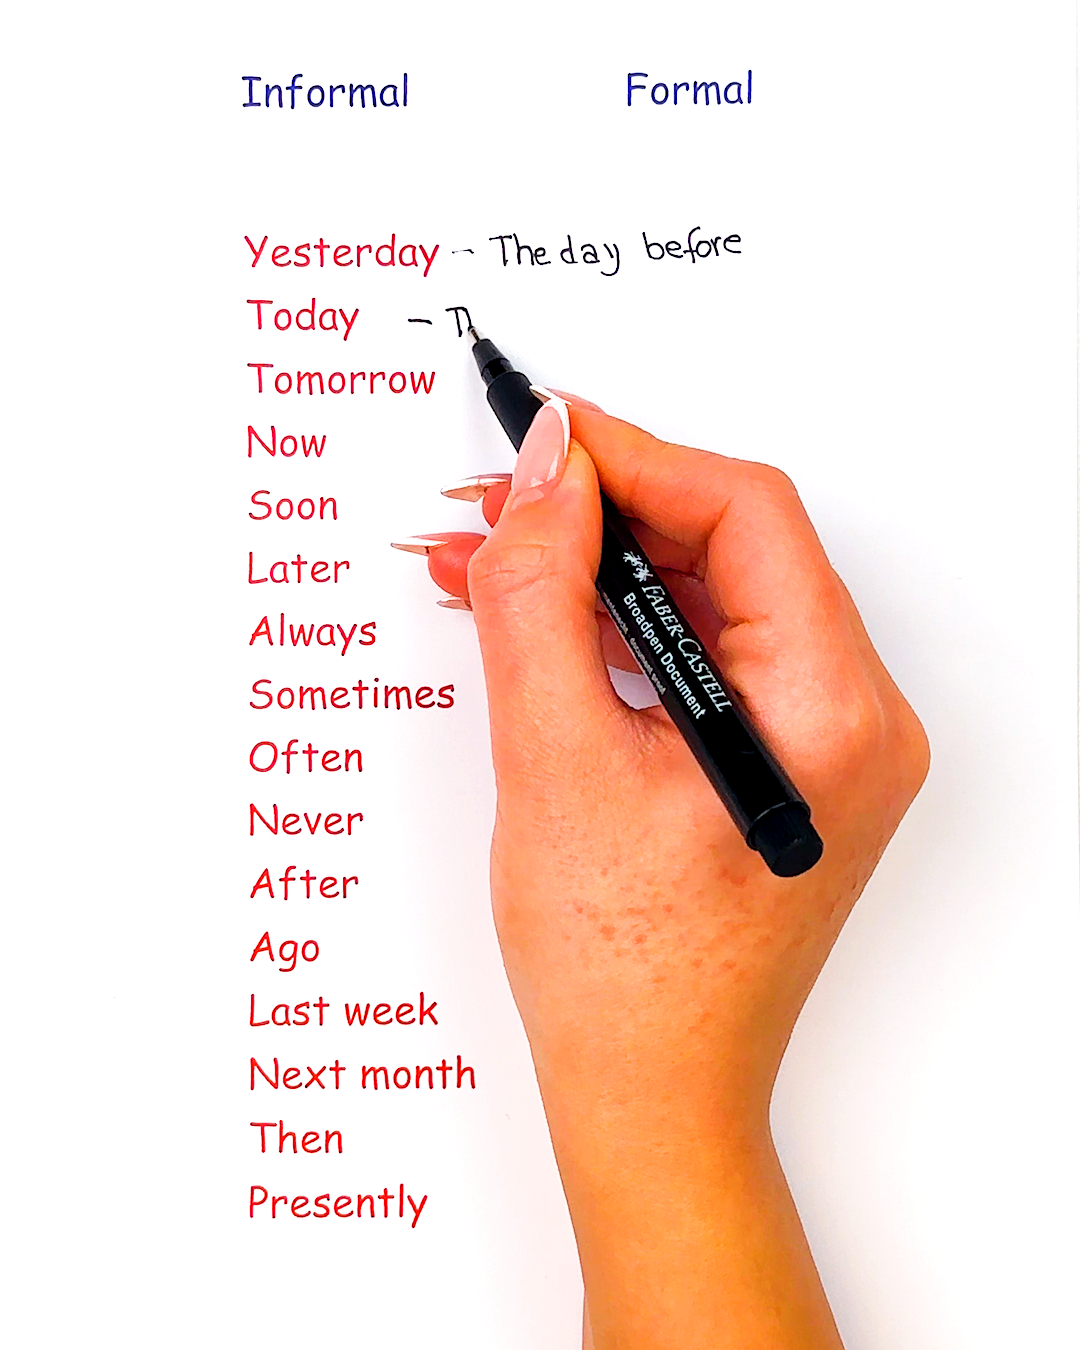 Informal Formal
Yesterday - The day before
Today - T
Tomorrow
Now
Soon
Later
Always
Sometimes
Often
Never
After
Ago
Last week
Next month
Then
Presently
FABER-CASTELL
Broadpen Document